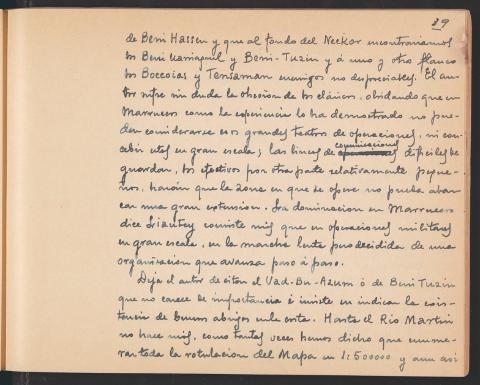 39
de Beni Hassen y que al fondo del Neckor encontrariamos
los Beni Uarriaguil y Beni-Tuzin y á uno y otro flanco
los Boccoias y Tensaman enemigos no despreciables. El au-
tor sufre sin duda la obsesion de los clásicos, olvidando que en
Marruecos como la experiencia lo ha demostrado no pue-
den considerarse esos grandes teatros de operaciones, ni con-
cebir estas en gran escala; las lineas de comunicaciones dificiles de
guardar, los efectivos por otra parte relativamente peque-
ños, harán que la zona en que se opere no pueda abar-
car una gran extension. La dominacion en Marruecos
dice Liautey consiste mas que en operaciones militares
en gran escala, en la marcha lenta pero decidida de una
organizacion que avanza paso á paso.
Deja el autor de citar el Uad-Bu-Azum ó de Beni Tuzin
que no carece de importancia é insiste en indicar la exis-
tencia de buenos abrigos en la costa. Hasta el Rio Martin
no hace mas, como tantas veces hemos dicho que enume-
rar toda la rotulacion del Mapa en 1:500000 y aun asi